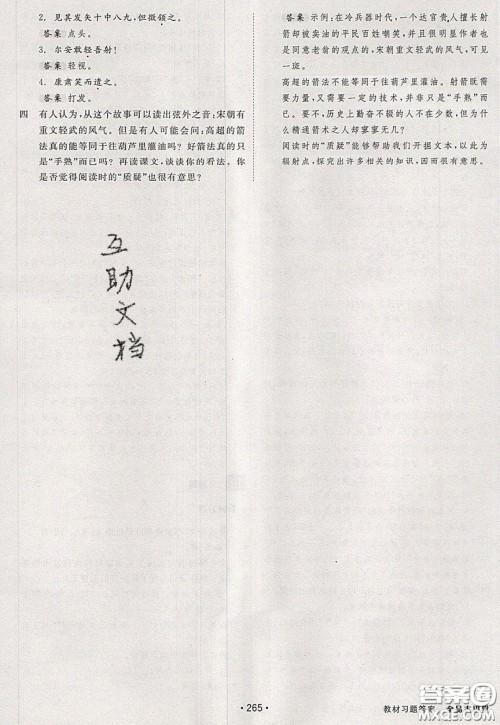 2. 见其发矢十中八九,但微颔之。
答案 点头。
3. 尔安敢轻吾射!
答案 轻视。
4. 康肃笑而遣之。
答案 打发。
四 有人认为,从这个故事可以读出弦外之音:宋朝有
重文轻武的风气。但是有人可能会问:高超的箭
法真的能等同于往葫芦里灌油吗?好箭法真的只
是“手熟”而已吗?再读课文,谈谈你的看法。你
是否觉得阅读时的“质疑”也很有意思?
答案 示例:在冷兵器时代,一个达官贵人擅长射
箭却被卖油的平民百姓嘲笑,并且很明显作者也
是赞同老翁的观点的,宋朝重文轻武的风气,可见
一斑。
高超的箭法不能等同于往葫芦里灌油。射箭需要
技术,也需要力量和天赋,并不只是“手熟”而已,
不然的话,历史上勤奋不倦的人不在少数,但为什
么精通箭术之人却寥寥无几?
阅读时的“质疑”能够帮助我们开掘文本,以此为
辐射点,探究出许多相关的知识,因而很有意思。
互
助
文
档
·265·
教材习题答案